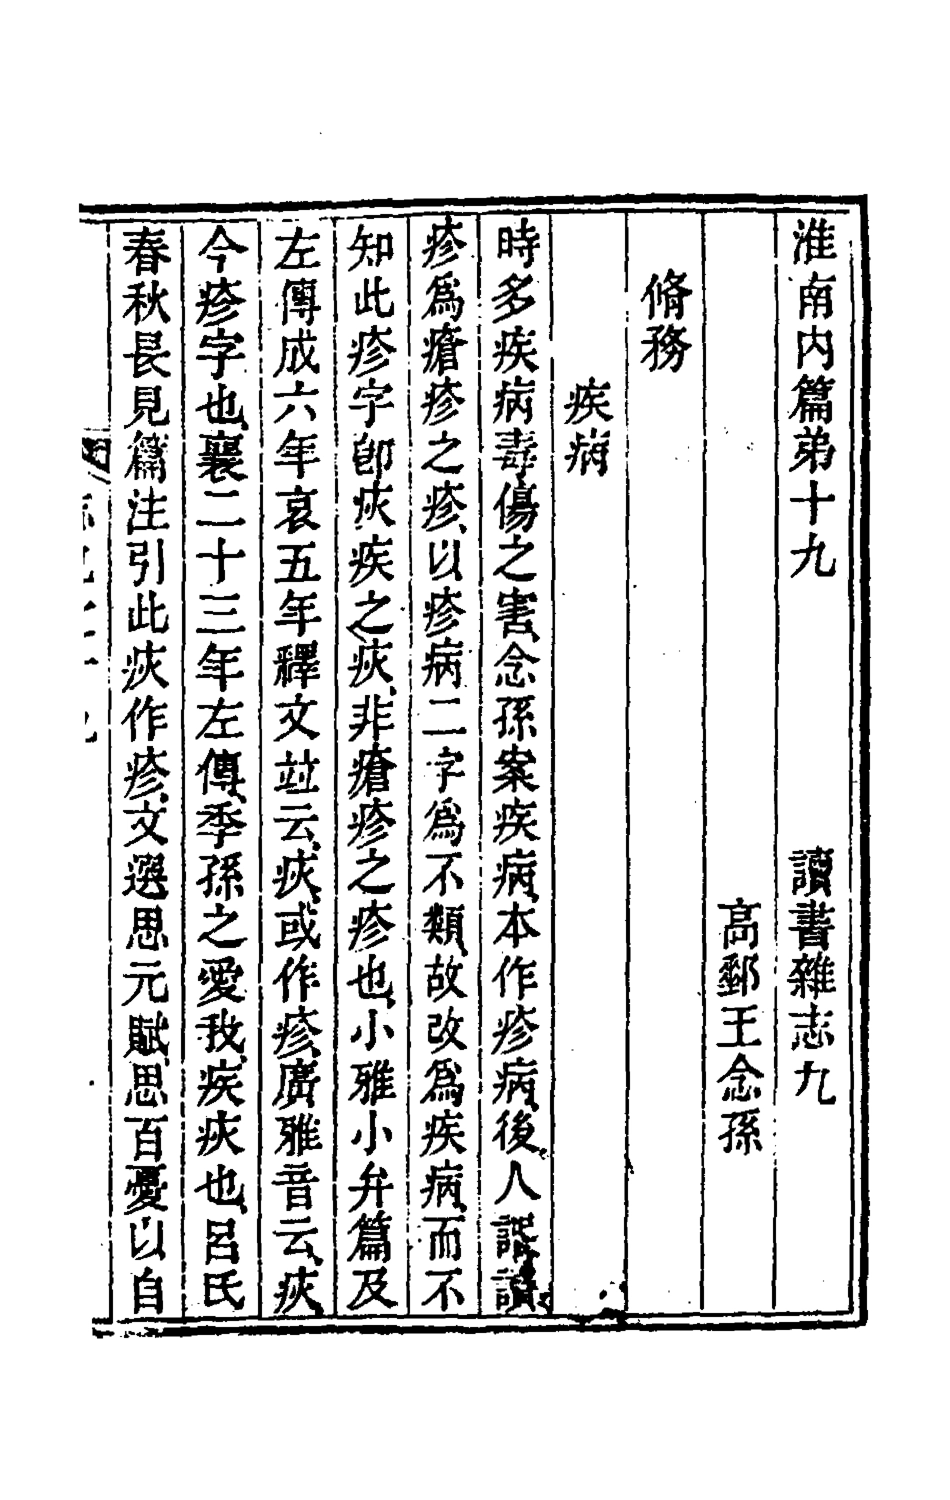 淮南內篇弟十九　讀書雜志九
高郵王念孫
脩務
疾病
時多疾病毒傷之害念孫案疾病本作疹病後人誤讀
疹爲瘡疹之疹以疹病二字爲不類故改爲疾病而不
知此疹字卽疢疾之疢非瘡疹之疹也小雅小弁篇及
左傳成六年哀五年釋文竝云疢或作疹廣雅音云疢
今疹字也襄二十三年左傳季孫之愛我疾疢也呂氏
春秋長見篇注引此疢作疹文選思元賦思百憂以自